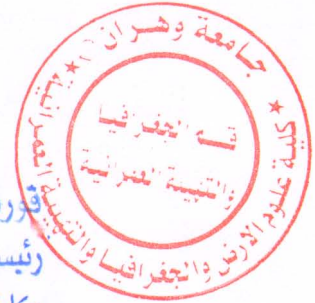 جامعة وهران
كلية علوم الأرض والجغرافيا والتهيئة العمرانية
قسم الجغرافيا
والتهيئة العمرانية
رئيس